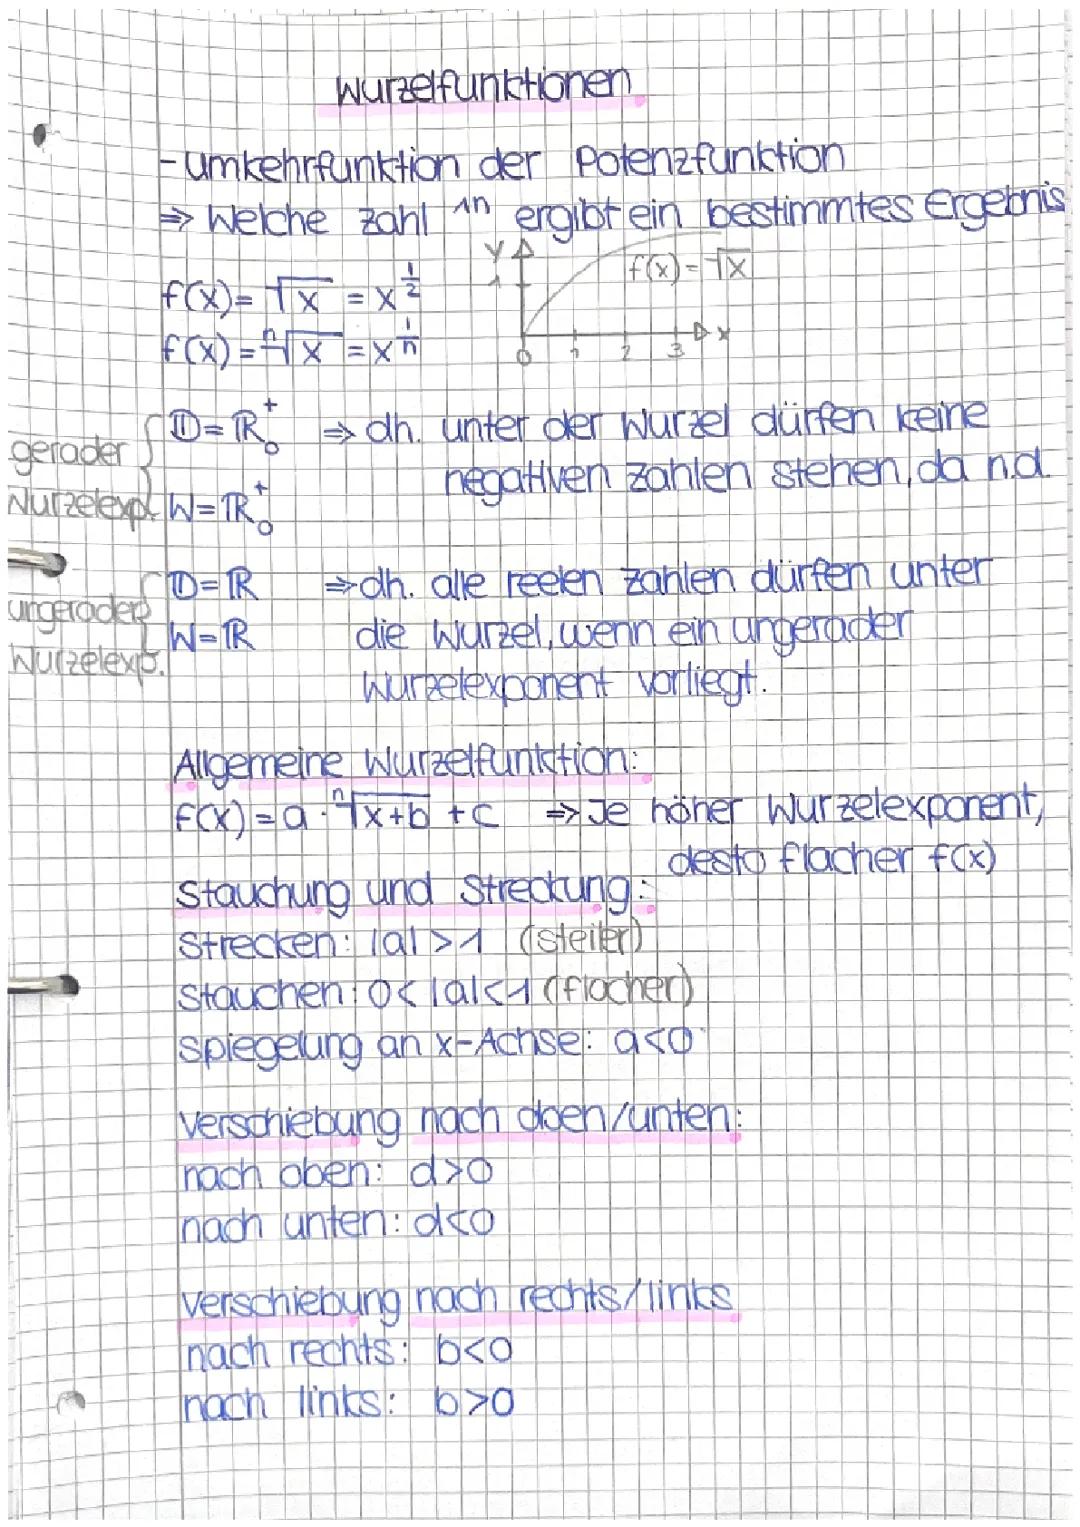 Wurzelfunktionen
- Umkehrfunktion der Potenzfunktion
⇒ Welche Zahl ^n ergibt ein bestimmtes Ergebnis
f(x) = √x = x^(1/2)
f(x) = ⁿ√x = x^(1/n)
y
1
f(x) = √x
x
0 1 2 3
gerader Wurzelexp.
D = ℝ₀⁺ ⇒ dh. unter der Wurzel dürfen keine
negativen Zahlen stehen, da n.d.
W = ℝ₀⁺
ungerader Wurzelexp.
D = ℝ ⇒ dh. alle reelen Zahlen dürfen unter
W = ℝ die Wurzel, wenn ein ungerader
Wurzelexponent vorliegt.
Allgemeine Wurzelfunktion:
f(x) = a · ⁿ√x+b + c ⇒ Je höher Wurzelexponent,
desto flacher f(x)
Stauchung und Streckung:
Strecken: |a| > 1 (steiler)
Stauchen: 0 < |a| < 1 (flacher)
Spiegelung an x-Achse: a<0
Verschiebung nach oben/unten:
nach oben: d>0
nach unten: d<0
Verschiebung nach rechts/links
nach rechts: b<0
nach links: b>0